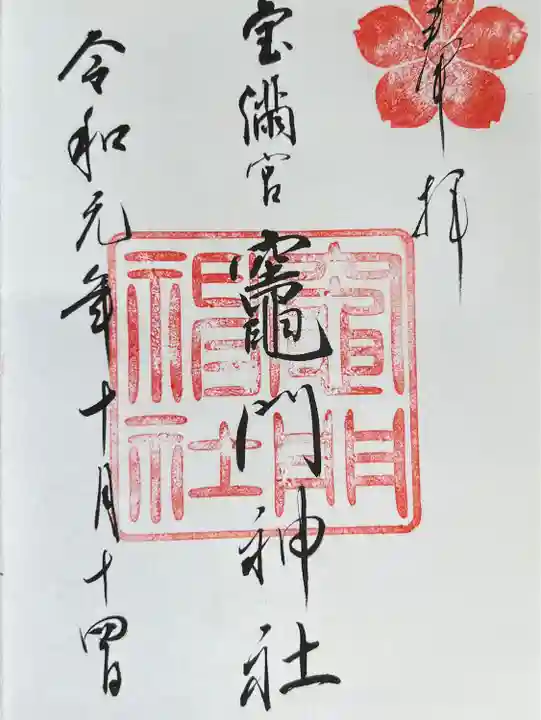 奉拝
宝満宮 竈門神社
竈門神社
令和元年十月十四日